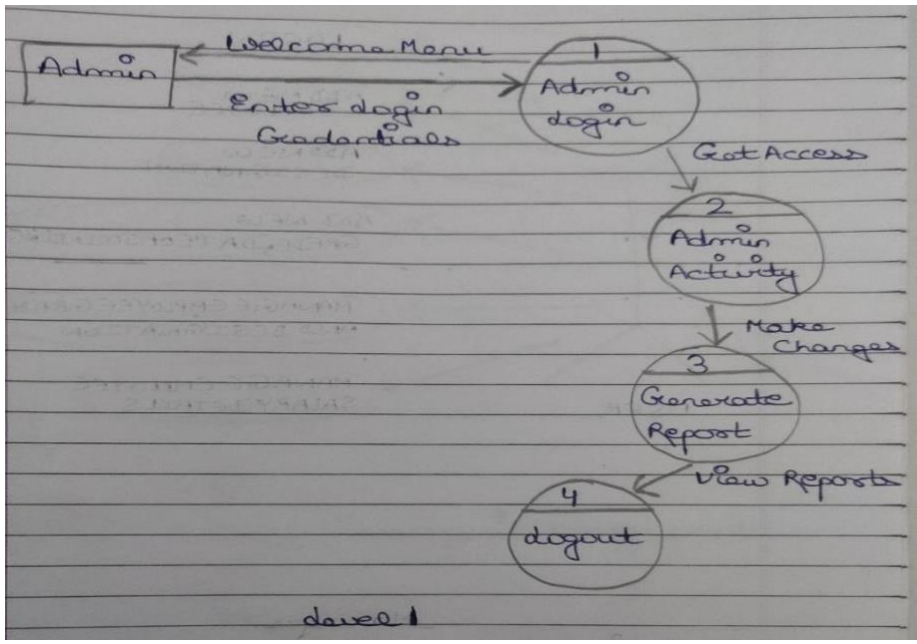 Welcome Menu
Admin
Enter Login
Credentials
1
Admin
Login
Get Access
2
Admin
Activity
Make
Changes
3
Generate
Report
View Reports
4
Logout
Level 1